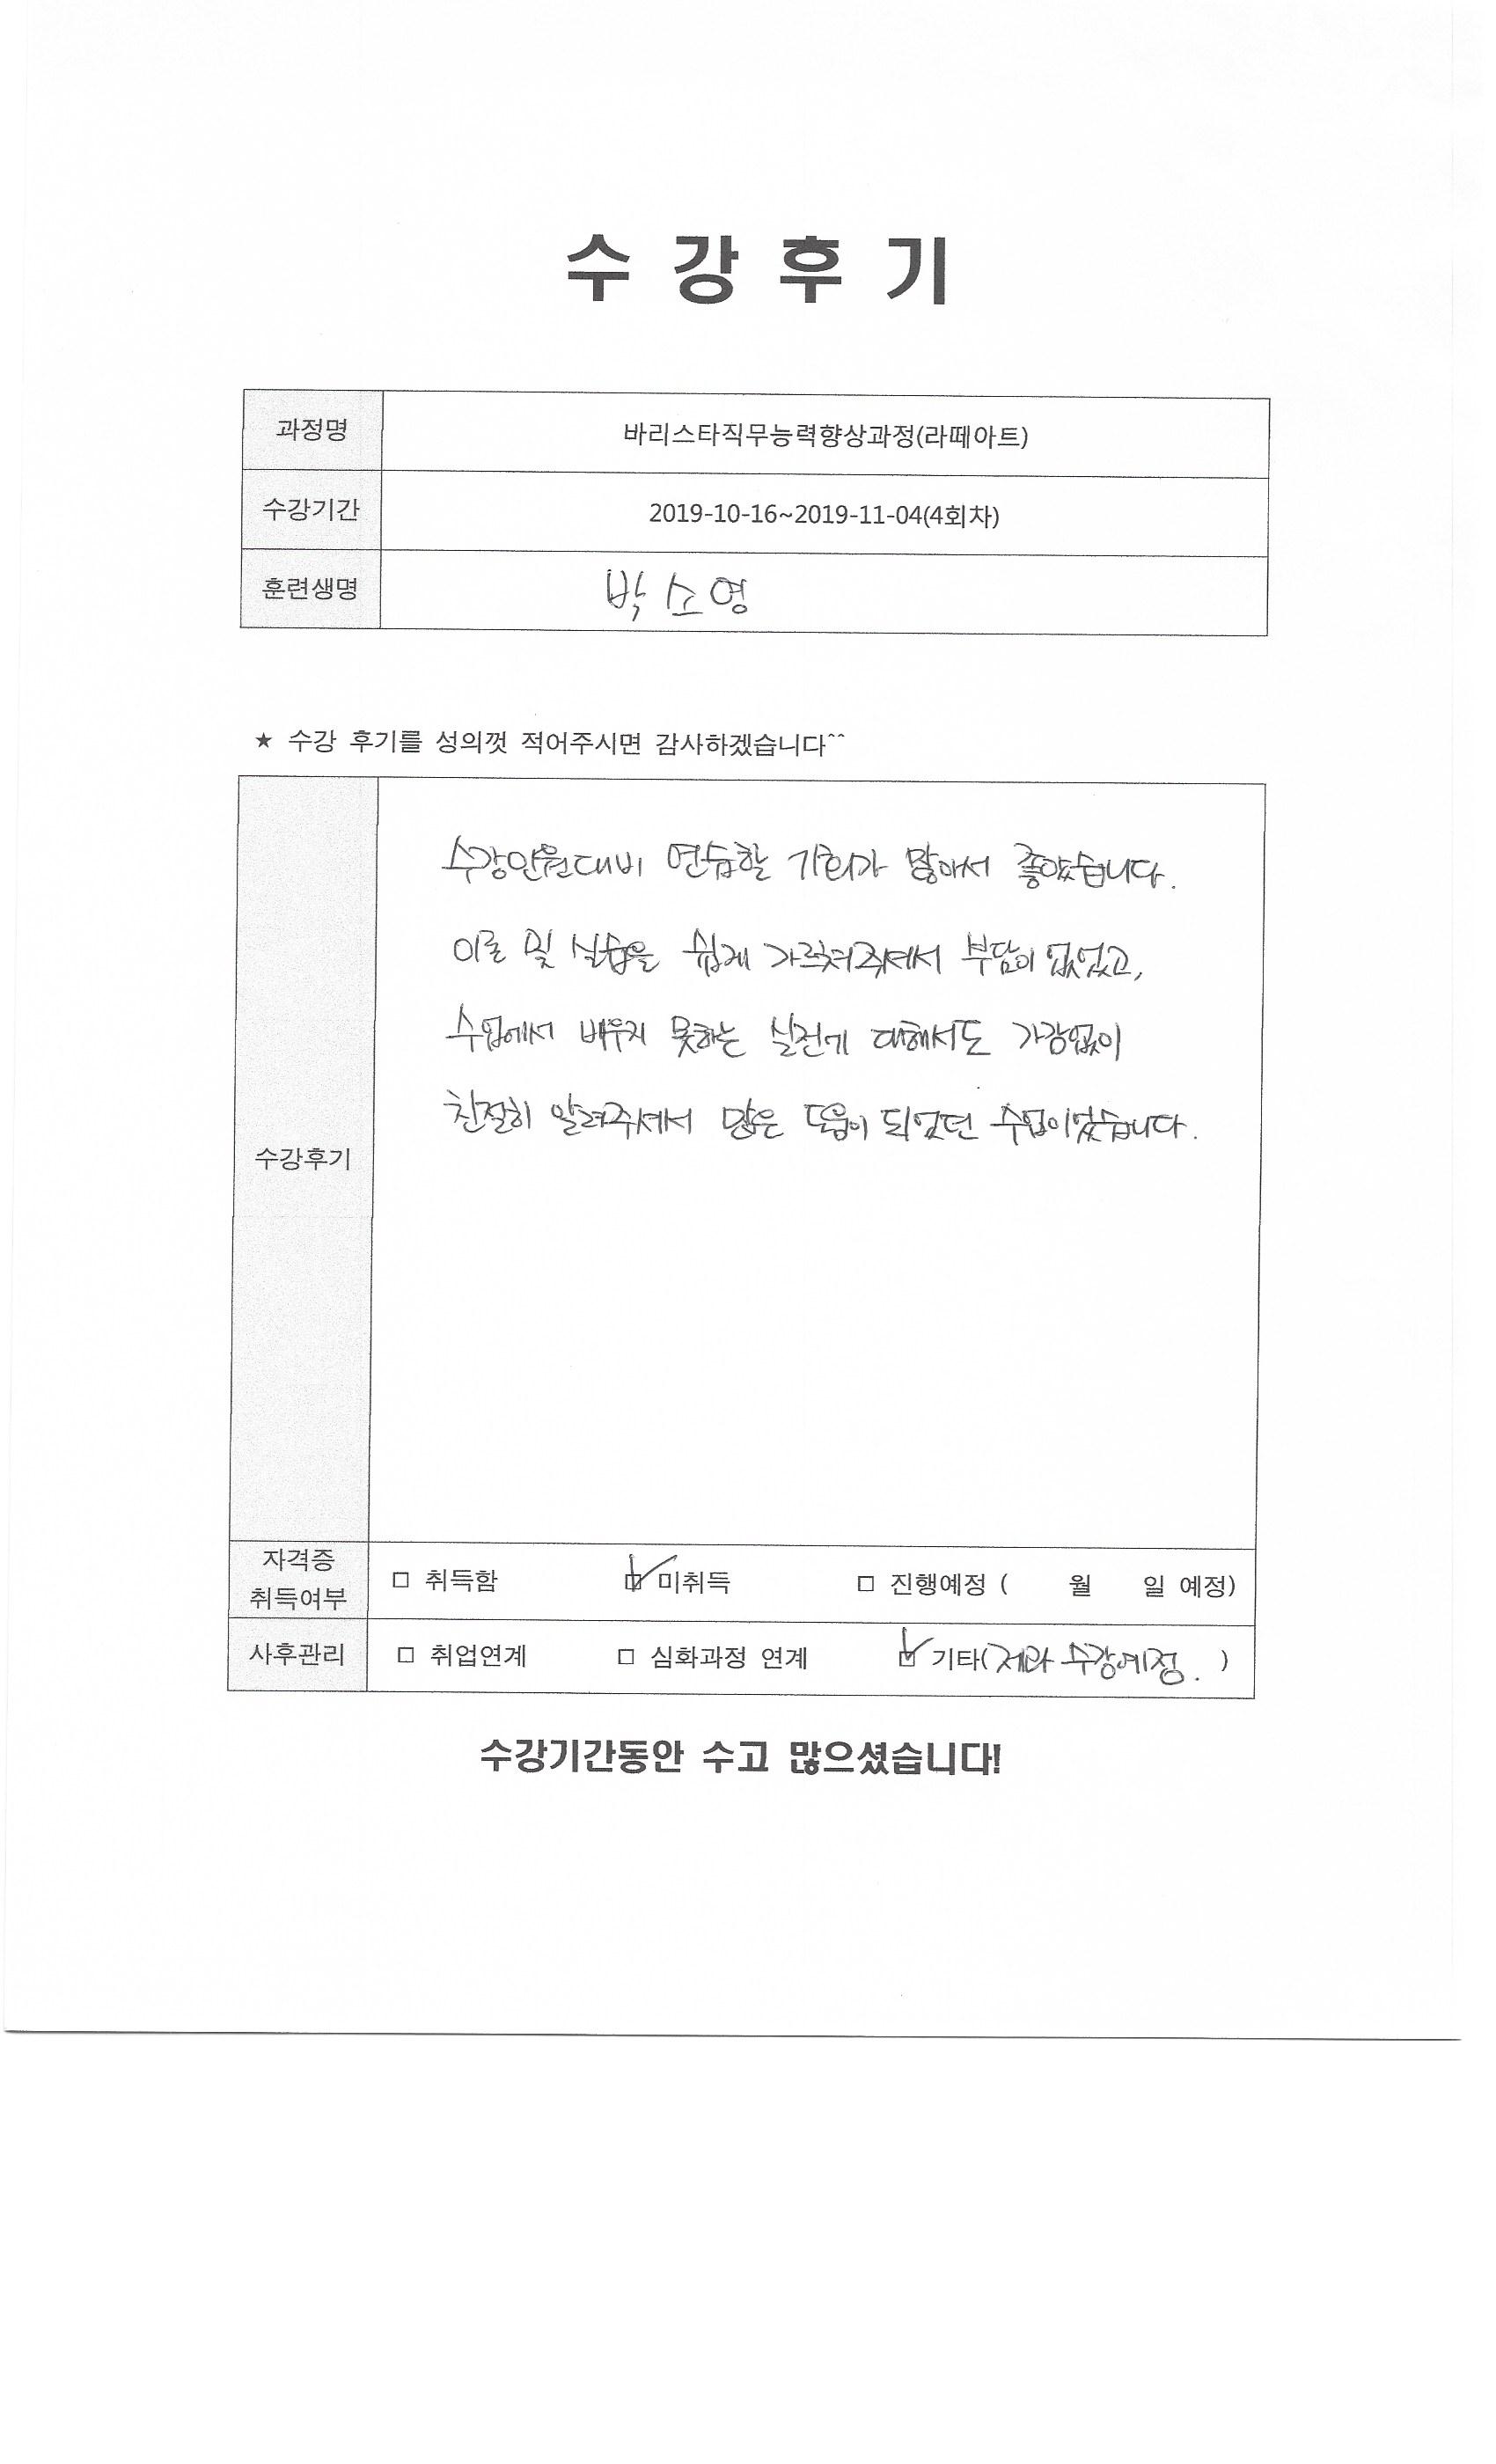 수 강 후 기
과정명 바리스타직무능력향상과정(라떼아트)
수강기간 2019-10-16~2019-11-04(4회차)
훈련생명 박소영
★ 수강 후기를 성의껏 적어주시면 감사하겠습니다^^
수강인원대비 연습할 기회가 많아서 좋았습니다.
이론 및 실습을 쉽게 가르쳐주셔서 부담이 없었고,
수업에서 배우지 못하는 실전에 대해서도 가감없이
친절히 알려주셔서 많은 도움이 되었던 수업이었습니다.
수강후기
자격증
취득여부
□ 취득함 ☑ 미취득 □ 진행예정 ( 월 일 예정)
사후관리 □ 취업연계 □ 심화과정 연계 ☑ 기타(제과 수강예정. )
수강기간동안 수고 많으셨습니다!